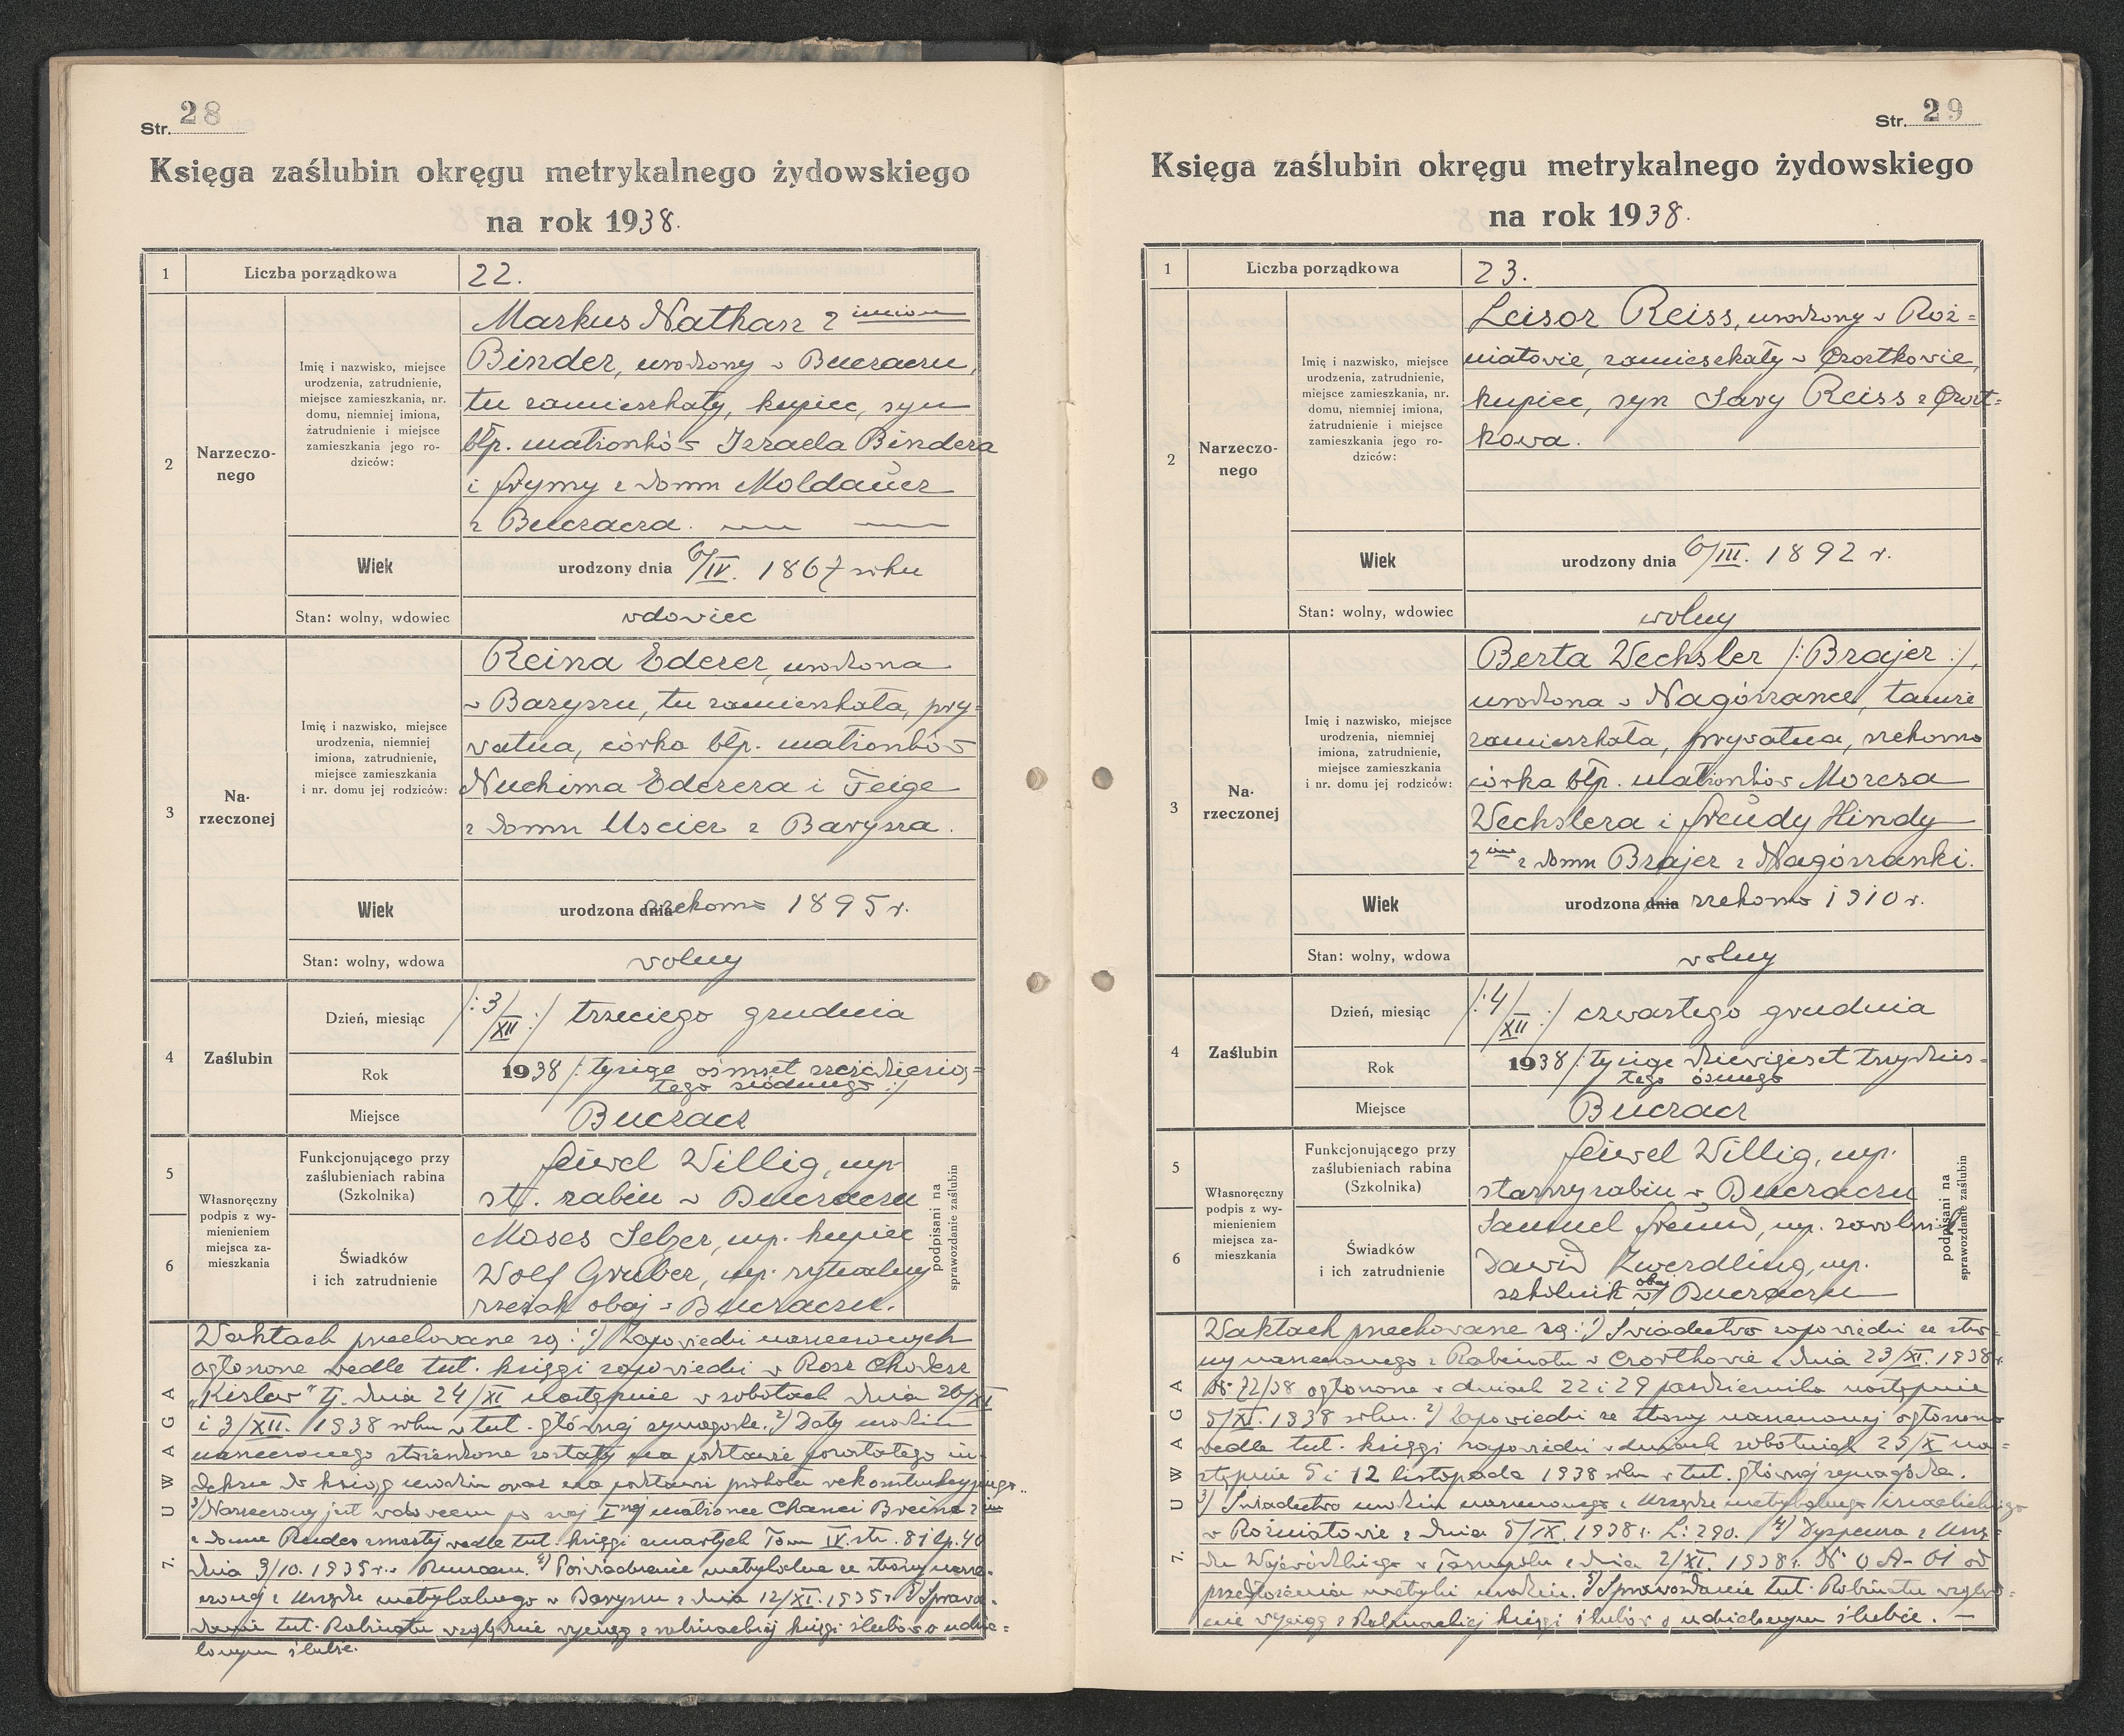 Str. 28
Księga zaślubin okręgu metrykalnego żydowskiego
na rok 1938.
1
Liczba porządkowa
22.
2
Narzeczo-
nego
Imię i nazwisko, miejsce
urodzenia, zatrudnienie,
miejsce zamieszkania, nr.
domu, niemniej imiona,
zatrudnienie i miejsce
zamieszkania jego ro-
dziców:
Markus Nathan 2 imion
Binder, urodzony w Buczaczu,
tu zamieszkały, kupiec, syn
błp. małżonków Izraela Bindera
i Frymy z domu Moldauer
z Buczacza.
Wiek
urodzony dnia 6/IV. 1867 roku
Stan: wolny, wdowiec
wdowiec
3
Na-
rzeczonej
Imię i nazwisko, miejsce
urodzenia, niemniej
imiona, zatrudnienie,
miejsce zamieszkania
i nr. domu jej rodziców:
Reina Ederer, urodzona
w Baryszu, tu zamieszkała, pry-
watna, córka błp. małżonków
Nuchima Ederera i Feige
z domu Uscier z Barysza.
Wiek
urodzona dnia rzekomo 1895 r.
Stan: wolny, wdowa
wolny
4
Zaślubin
Dzień, miesiąc
/:3/XII:/ trzeciego grudnia
Rok
1938 /: tysiąc ośmset sześćdziesią-
tego siódmego :/
Miejsce
Buczacz
5
6
Własnoręczny
podpis z wy-
mienieniem
miejsca za-
mieszkania
Funkcjonującego przy
zaślubieniach rabina
(Szkolnika)
Feiwel Willig, mp.
st. rabin w Buczaczu
Świadków
i ich zatrudnienie
Moses Selzer, mp. kupiec
Wolf Gruber, mp. rytualny
rzezak obaj w Buczaczu.
podpisani na
sprawozdanie zaślubin
7. UWAGA
W aktach przechowane są: 1) Zapowiedzi narzeczonych
ogłoszone wedle tut. księgi zapowiedzi w Rosz Chodesz
„Kislew" tj. dnia 24/XI następnie w sobotach dnia 26/XI
i 3/XII. 1938 roku w tut. głównej synagodze. 2) Daty urodzin
narzeczonego stwierdzone zostały na podstawie pozostałego in-
deksu do ksiąg urodzin oraz na podstawie protokołu rekonstrukcyjnego.
3) Narzeczony jest wdowcem po swej I-ej małżonce Chanci Breine 2 im
z domu Rudes zmarłej wedle tut. księgi zmarłych Tom IV. str. 81 lp. 40
dnia 9/10. 1935 r. w Buczaczu. 4) Poświadczenie metrykalne ze strony narze-
czonej z Urzędu metrykalnego w Baryszu z dnia 12/XI. 1935 r. 5) Sprawo-
zdanie tut. Rabinatu względnie wyciąg z rabinackiej księgi ślubów o udzie-
lonym ślubie.
Str. 29
Księga zaślubin okręgu metrykalnego żydowskiego
na rok 1938.
1
Liczba porządkowa
23.
2
Narzeczo-
nego
Imię i nazwisko, miejsce
urodzenia, zatrudnienie,
miejsce zamieszkania, nr.
domu, niemniej imiona,
zatrudnienie i miejsce
zamieszkania jego ro-
dziców:
Leisor Reiss, urodzony w Roż-
niatowie, zamieszkały w Czortkowie,
kupiec, syn Sary Reiss z Czort-
kowa.
Wiek
urodzony dnia 6/III. 1892 r.
Stan: wolny, wdowiec
wolny
3
Na-
rzeczonej
Imię i nazwisko, miejsce
urodzenia, niemniej
imiona, zatrudnienie,
miejsce zamieszkania
i nr. domu jej rodziców:
Berta Wechsler /:Brajer:/,
urodzona w Nagórzance, tamże
zamieszkała, prywatna, rzekomo
córka błp. małżonków Moresa
Wechslera i Freudy Hindy
2 im z domu Brajer z Nagórzanki.
Wiek
urodzona dnia rzekomo 1910 r.
Stan: wolny, wdowa
wolny
4
Zaślubin
Dzień, miesiąc
/:4/XII:/ czwartego grudnia
Rok
1938 /: tysiąc dziewięćset trzydzies-
tego ósmego
Miejsce
Buczacz
5
6
Własnoręczny
podpis z wy-
mienieniem
miejsca za-
mieszkania
Funkcjonującego przy
zaślubieniach rabina
(Szkolnika)
Feiwel Willig, mp.
starszy rabin w Buczaczu
Świadków
i ich zatrudnienie
Samuel Freund, mp.
Dawid Zwerdling, mp.
szkolnik obaj w Buczaczu
podpisani na
sprawozdanie zaślubin
7. UWAGA
W aktach przechowane są: 1) Świadectwo zapowiedzi ze stro-
ny narzeczonego z Rabinatu w Czortkowie z dnia 23/XI. 1938 r.
Nr 72/38 ogłoszone w dniach 22 i 29 października następnie
5/XI. 1938 roku. 2) Zapowiedzi ze strony narzeczonej ogłoszono
wedle tut. księgi zapowiedzi w dniach sobotnich 29/X na-
stępnie 5 i 12 listopada 1938 roku w tut. głównej synagodze.
3) Świadectwo urodzin narzeczonego z Urzędu metrykalnego izraelickiego
w Rożniatowie z dnia 5/IX. 1938 r. L: 290. 4) Dyspensa z Urzę-
du Wojewódzkiego w Tarnopolu z dnia 2/XI. 1938 r. Nr O A-01 od
przedłożenia metryki urodzin. 5) Sprawozdanie tut. Rabinatu wzglę-
nie wyciąg z Rabinackiej księgi ślubów o udzielonym ślubie.